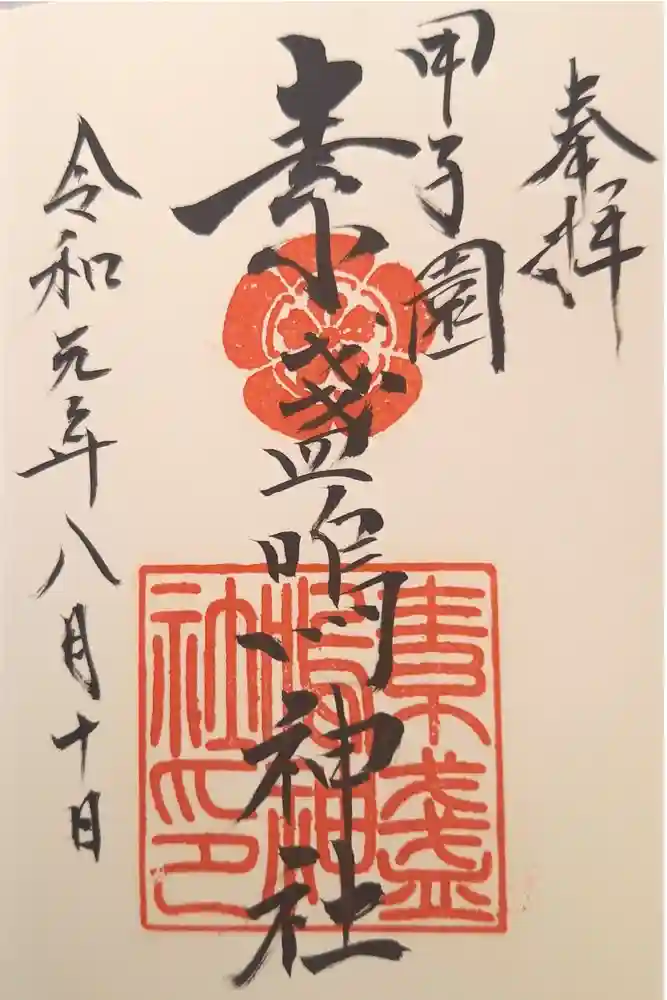 奉拝
甲子園
素盞嗚神社
令和元年八月十日
素盞
嗚神
社印